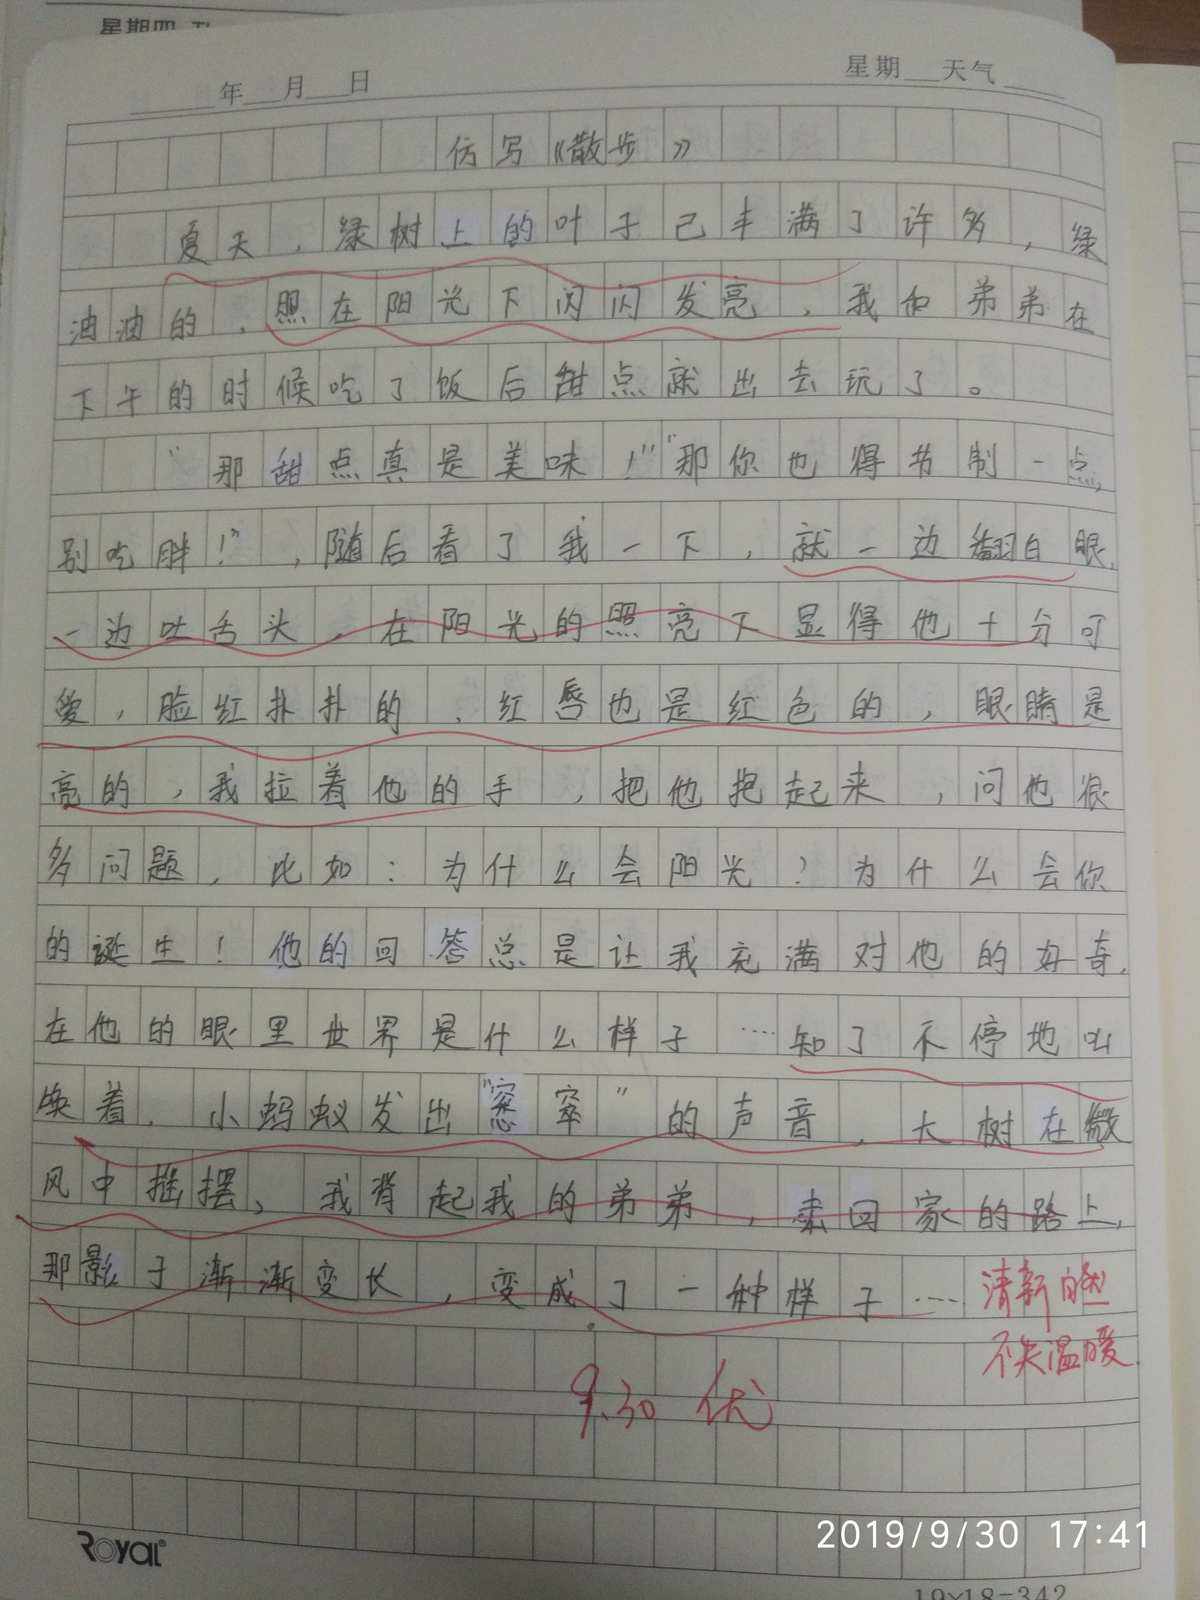 星期四
年 月 日 星期 天气
仿写《散步》
夏天，绿树上的叶子已丰满了许多，绿
油油的，照在阳光下闪闪发亮，我和弟弟在
下午的时候吃了饭后甜点就出去玩了。
“那甜点真是美味！”“那你也得节制一点，
别吃胖！”，随后看了我一下，就一边翻白眼，
一边吐舌头，在阳光的照亮下显得他十分可
爱，脸红扑扑的，红唇也是红色的，眼睛是
亮的，我拉着他的手，把他抱起来，问他很
多问题，比如：为什么会阳光？为什么会你
的诞生！他的回答总是让我充满对他的好奇，
在他的眼里世界是什么样子……知了不停地叫
唤着，小蚂蚁发出“窸窣”的声音，大树在微
风中摇摆，我背起我的弟弟，走回家的路上，
那影子渐渐变长，变成了一种样子……
清新自然
不失温暖
9.30 优
ROYAL
2019/9/30 17:41
19×18=342